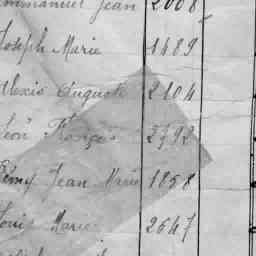 Emmanuel Jean 2008
Joseph Marie 1489
Alexis Auguste 2104
Léon 2792
Rémy Jean Marie 1858
Louis Marie 2547